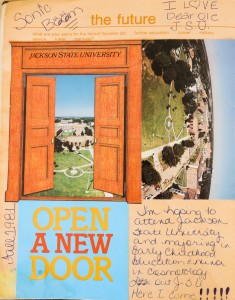 Sonic
Boom
the future
I LOVE
Dear ole
J.S.U.
JACKSON STATE UNIVERSITY
Fall 1981
OPEN
A NEW
DOOR
I'm hoping to
attend Jackson
State University
and majoring in
Early Childhood
Education minor
in Cosmetology
J-S-U
Here I Come!!!!!